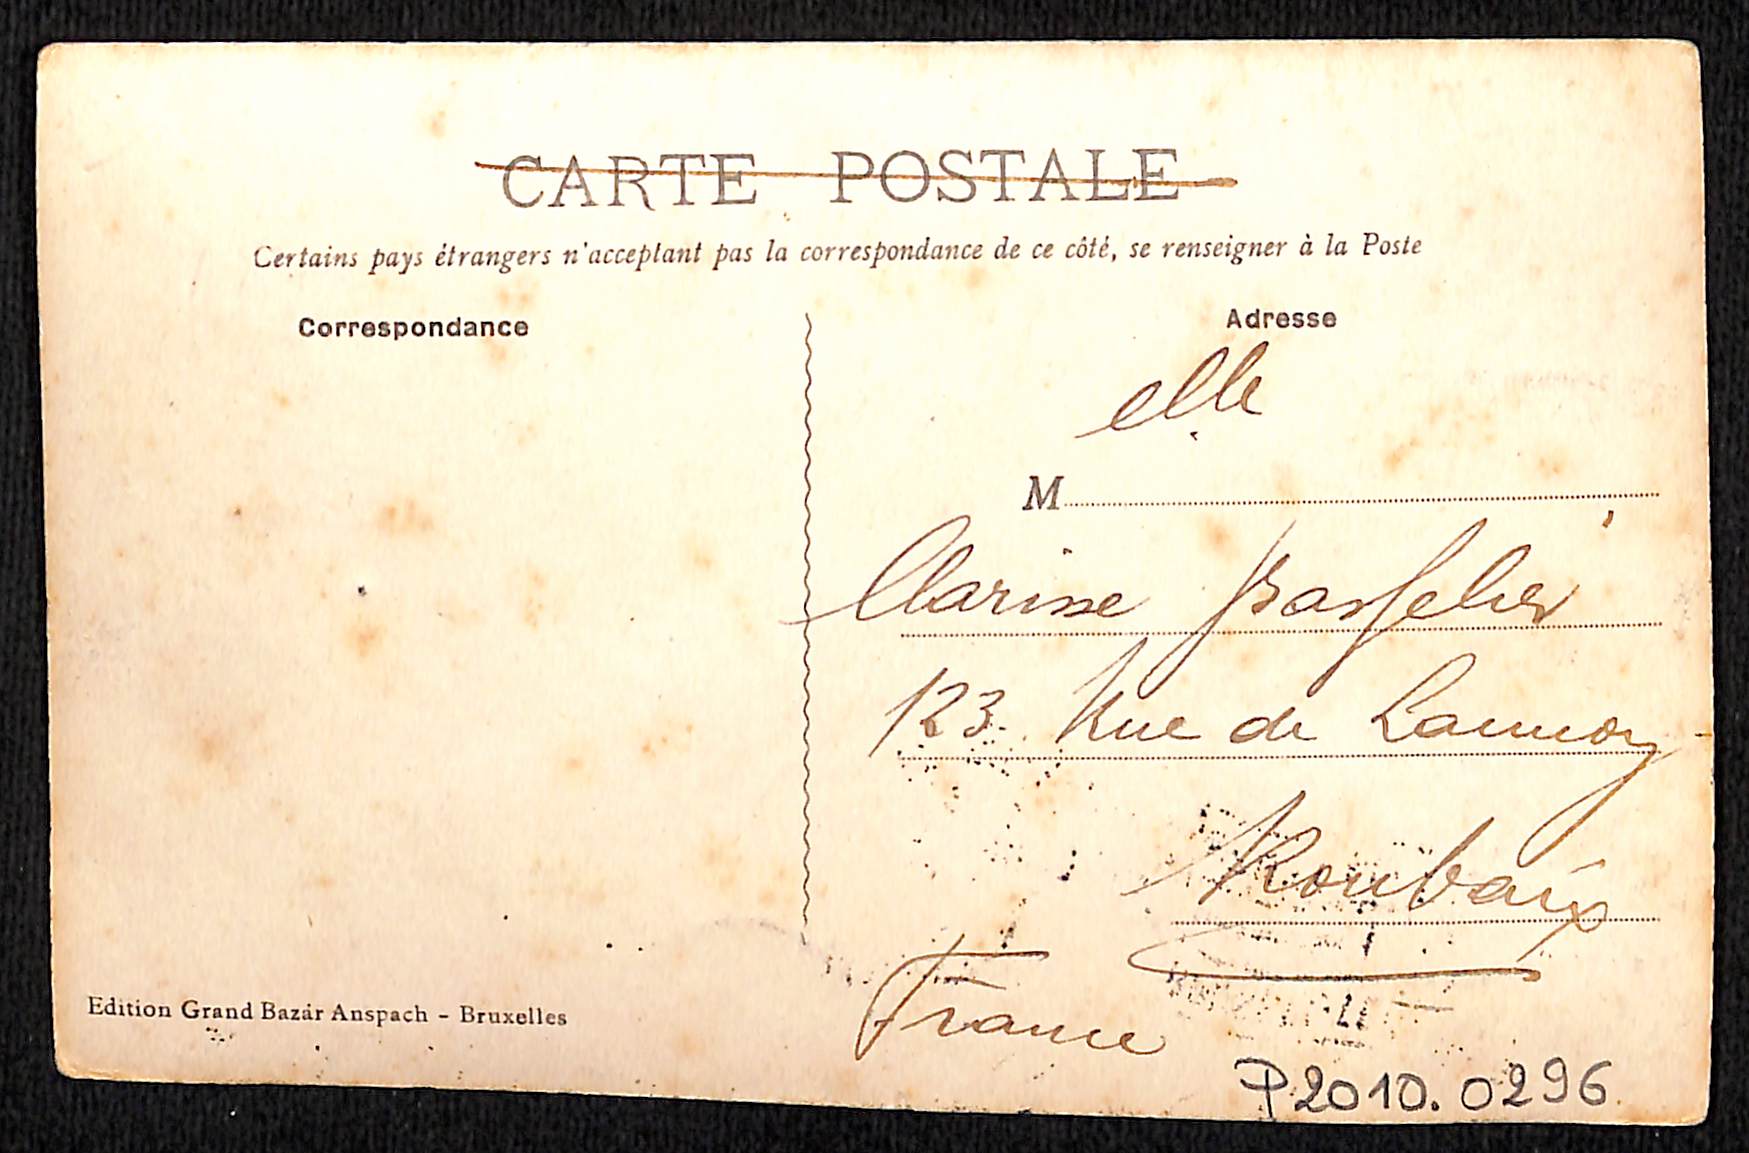 CARTE POSTALE
Certains pays étrangers n'acceptant pas la correspondance de ce côté, se renseigner à la Poste
Correspondance
Adresse
elle
M
Clarisse
123 Rue de Lannoy
Roubaix
France
Edition Grand Bazar Anspach - Bruxelles
P2010.0296